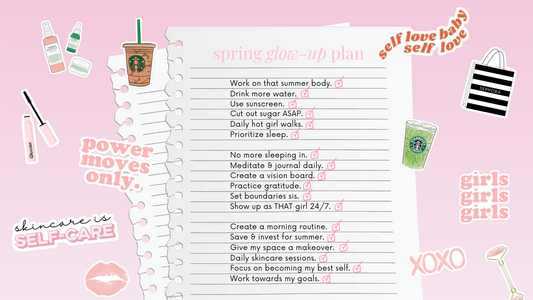 spring glow-up plan
Work on that summer body.
Drink more water.
Use sunscreen.
Cut out sugar ASAP.
Daily hot girl walks.
Prioritize sleep.
No more sleeping in.
Meditate & journal daily.
Create a vision board.
Practice gratitude.
Set boundaries sis.
Show up as THAT girl 24/7.
Create a morning routine.
Save & invest for summer.
Give my space a makeover.
Daily skincare sessions.
Focus on becoming my best self.
Work towards my goals.
self love baby
self love
SEPHORA
power
moves
only.
skincare is
SELF-CARE
Glossier.
girls
girls
girls
XOXO